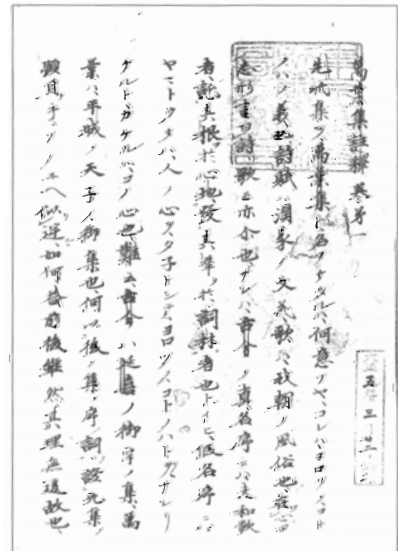 萬葉集註釋卷第一
先此集ヲ萬葉集ト名ツクル何意ソヤコレハヨロツノコト
ノハノ義也詩賦ハ漢家ノ文花歌ハ我朝ノ風俗也在心
志形言詩歌亦尒也サレハ古今ノ真名序ニハ夫和歌
者託其根於心地發其華於詞林者也トイヒ假名序ニハ
ヤマトウタハ人ノ心ヲタネトシテヨロツノコトノハトソナレリ
ケルトカケルハコノ心也難云古今ハ延喜ノ御宇ノ集萬
葉ハ平城ノ天子ノ御集也何以後ノ集ノ序ノ詞證先集
顕自乎ソノウヘ似逆如何答前後雖然其理無違故也